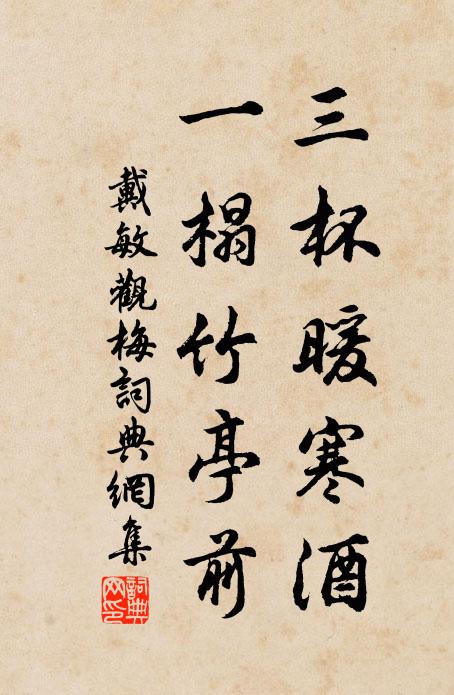 三杯暖寒酒
一榻竹亭前
戴敏觀梅詞典網集
詞典網印